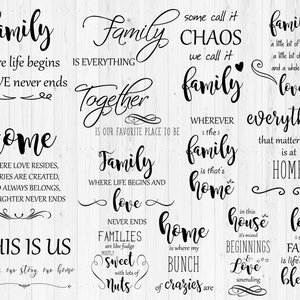 family
re life begins
VE never ends
Family
IS EVERYTHING
some call it
CHAOS
we call it
family
family
a little bit of
a little bit of
and a whole
love
Together
IS OUR FAVORITE PLACE TO BE
home
ERE LOVE RESIDES,
RIES ARE CREATED,
D ALWAYS BELONGS,
UGHTER NEVER ENDS
Family
WHERE LIFE BEGINS AND
love
NEVER ENDS
WHEREVER
the
family is
that's
home
everything
that matters
is at
HOME
THIS IS US
our story, our home
FAMILIES
are like fudge
mostly
Sweet
with lots of
Nuts
home
is where my
BUNCH
of crazies are
in this
house
it's mixed
BEGINNINGS
&
Love
unending
FA
is life's